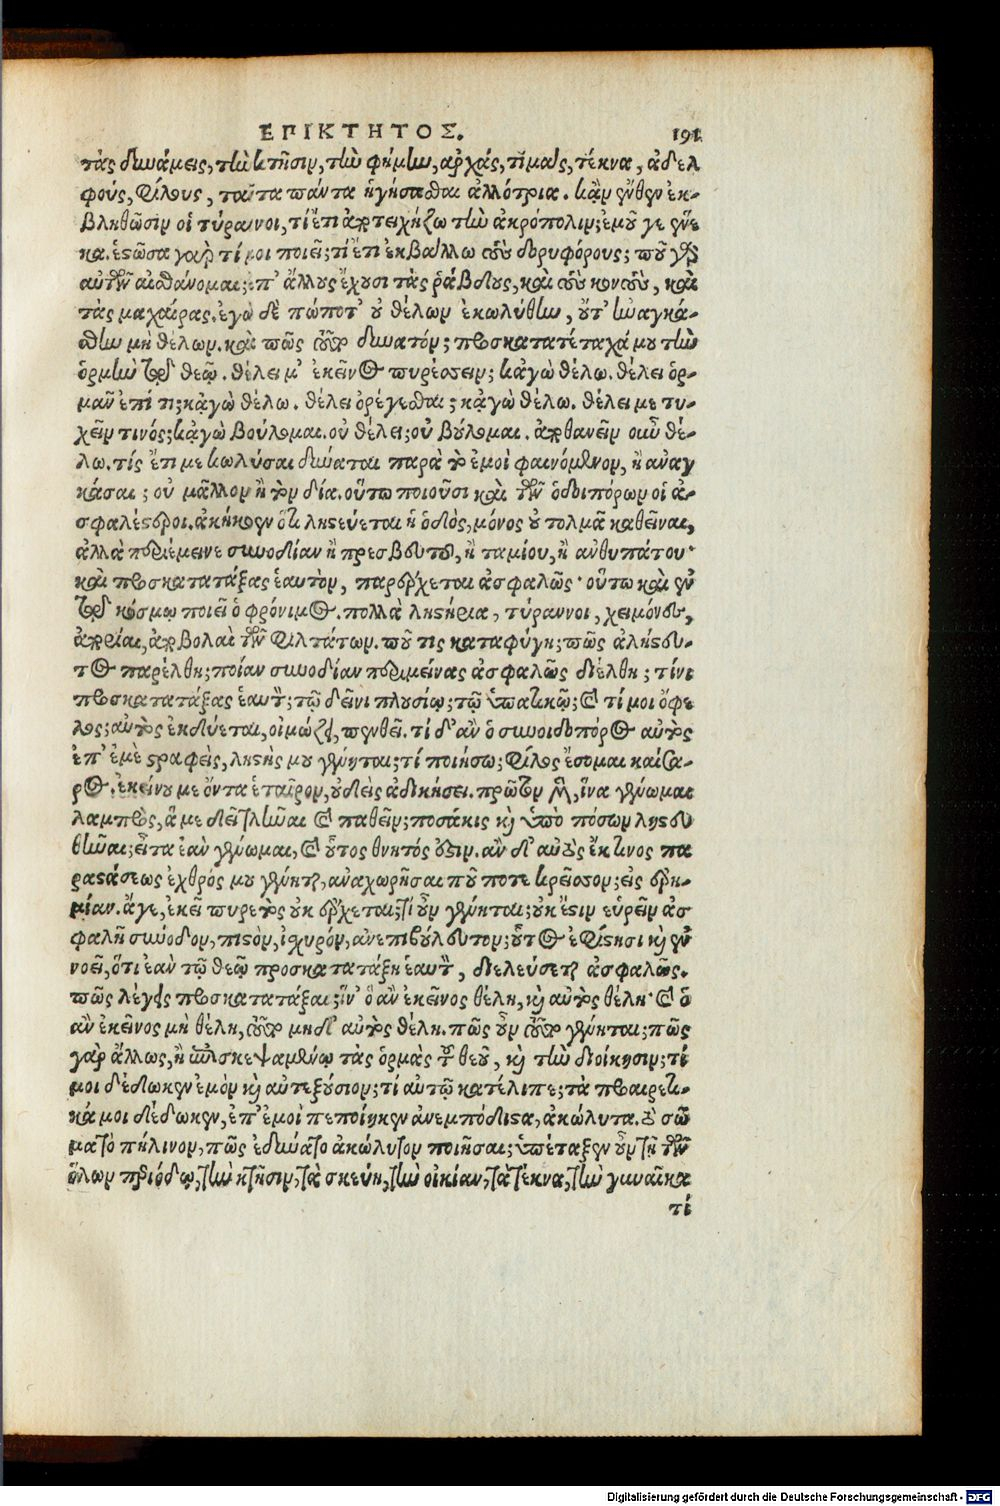 ΕΠΙΚΤΗΤΟΣ. 191
τὰς δυνάμεις, τὴν κτῆσιν, τὴν φήμην, ἀρχάς, τιμὰς, τέκνα, ἀδελ
φούς, φίλους, ταῦτα πάντα ἡγήσασθαι ἀλλότρια. κἂν ἔνθεν ἐκ-
βληθῶσιν οἱ τύραννοι, τί ἔτι ἀποτειχίζω τὴν ἀκρόπολιν; ἐμοῦ γε ἕνε
κα. ἑστῶσα γὰρ τί μοι ποιεῖ; τί ἔτι ἐκβάλλω τοὺς δορυφόρους; ποῦ γὰρ
αὐτῶν αἰσθάνομαι; ἐπ' ἄλλους ἔχουσι τὰς ῥάβδους, καὶ τοὺς κοντούς, καὶ
τὰς μαχαίρας. ἐγὼ δὲ πώποτ' οὐ θέλων ἐκωλύθην, οὔτ' ἠναγκά-
σθην μὴ θέλων. καὶ πῶς τοῦτο δυνατόν; προσκατατέταχά μου τὴν
ὁρμὴν τῷ θεῷ. θέλει μ' ἐκεῖνος πυρέσσειν; κἀγὼ θέλω. θέλει ὁρ-
μᾶν ἐπί τι; κἀγὼ θέλω. θέλει ὀρέγεσθαι; κἀγὼ θέλω. θέλει με τυ-
χεῖν τινός; κἀγὼ βούλομαι. οὐ θέλει; οὐ βούλομαι. ἀποθανεῖν οὖν θέ-
λω. τίς ἔτι με κωλῦσαι δύναται παρὰ τὸ ἐμοὶ φαινόμενον, ἢ ἀναγ
κάσαι; οὐ μᾶλλον ἢ τὸν δία. οὕτω ποιοῦσι καὶ τῶν ὁδοιπόρων οἱ ἀ-
σφαλέστεροι. ἀκήκοεν ὅτι λῃστεύεται ἡ ὁδὸς, μόνος οὐ τολμᾷ καθεῖναι,
ἀλλὰ περιέμεινε συνοδίαν ἢ πρεσβευτοῦ, ἢ ταμίου, ἢ ἀνθυπάτου·
καὶ προσκατατάξας ἑαυτὸν, παρέρχεται ἀσφαλῶς· οὕτω καὶ ἐν
τῷ κόσμῳ ποιεῖ ὁ φρόνιμος. πολλὰ λῃστήρια, τύραννοι, χειμῶνες,
ἀπορίαι, ἀποβολαὶ τῶν φιλτάτων. ποῦ τις καταφύγῃ; πῶς ἀλήστευ-
τος παρέλθῃ; ποίαν συνοδίαν περιμείνας ἀσφαλῶς διέλθῃ; τίνι
προσκατατάξας ἑαυτὸν; τῷ δεῖνι πλουσίῳ; τῷ ὑπατικῷ; καὶ τί μοι ὄφε
λος; αὐτὸς ἐκδύεται, οἰμώζει, πενθεῖ. τί δ' ἂν ὁ συνοιδοπόρος αὐτὸς
ἐπ' ἐμὲ στραφεὶς, λῃστής μου γένηται; τί ποιήσω; φίλος ἔσομαι καίσα-
ρος. ἐκείνου με ὄντα ἑταῖρον, οὐδεὶς ἀδικήσει. πρῶτον μὲν, ἵνα γένωμαι
λαμπρὸς, ἅ με δεῖ τλῆναι καὶ παθεῖν; ποσάκις καὶ ὑπὸ πόσων λῃστευ
θῆναι; εἶτα ἐὰν γένωμαι, καὶ οὗτος θνητός ἐστιν. ἂν δ' αὐτὸς ἔκ τινος πε
ριστάσεως ἐχθρός μου γένηται, ἀναχωρῆσαι πού ποτε κρεῖσσον; εἰς ἐρη-
μίαν. ἄγε, ἐκεῖ πυρετὸς οὐκ ἔρχεται; τί οὖν γένηται; οὐκ ἔστιν εὑρεῖν ἀσ
φαλῆ σύνοδον, πιστὸν, ἰσχυρόν, ἀνεπιβούλευτον; οὕτως ἐφίστησι καὶ ἐν
νοεῖ, ὅτι ἐὰν τῷ θεῷ προσκατατάξῃ ἑαυτὸν, διελεύσεται ἀσφαλῶς.
πῶς λέγεις προσκατατάξαι; ἵν' ὃ ἂν ἐκεῖνος θέλῃ, καὶ αὐτὸς θέλῃ· καὶ ὃ
ἂν ἐκεῖνος μὴ θέλῃ, τοῦτο μηδ' αὐτὸς θέλῃ. πῶς οὖν τοῦτο γένηται; πῶς
γὰρ ἄλλως, ἢ ἐπισκεψαμένῳ τὰς ὁρμὰς τοῦ θεοῦ, καὶ τὴν διοίκησιν; τί
μοι δέδωκεν ἐμὸν καὶ αὐτεξούσιον; τί αὑτῷ κατέλιπε; τὰ προαιρετι-
κά μοι δέδωκεν, ἐπ' ἐμοὶ πεποίηκεν ἀνεμπόδιστα, ἀκώλυτα. τὸ σῶ
μα τὸ πήλινον, πῶς ἐδύνατο ἀκώλυτον ποιῆσαι; ὑπέταξεν οὖν τῇ τῶν
ὅλων περιόδῳ, τὴν κτῆσιν, τὰ σκεύη, τὴν οἰκίαν, τὰ τέκνα, τὴν γυναῖκα
τί
Digitalisierung gefördert durch die Deutsche Forschungsgemeinschaft - DFG